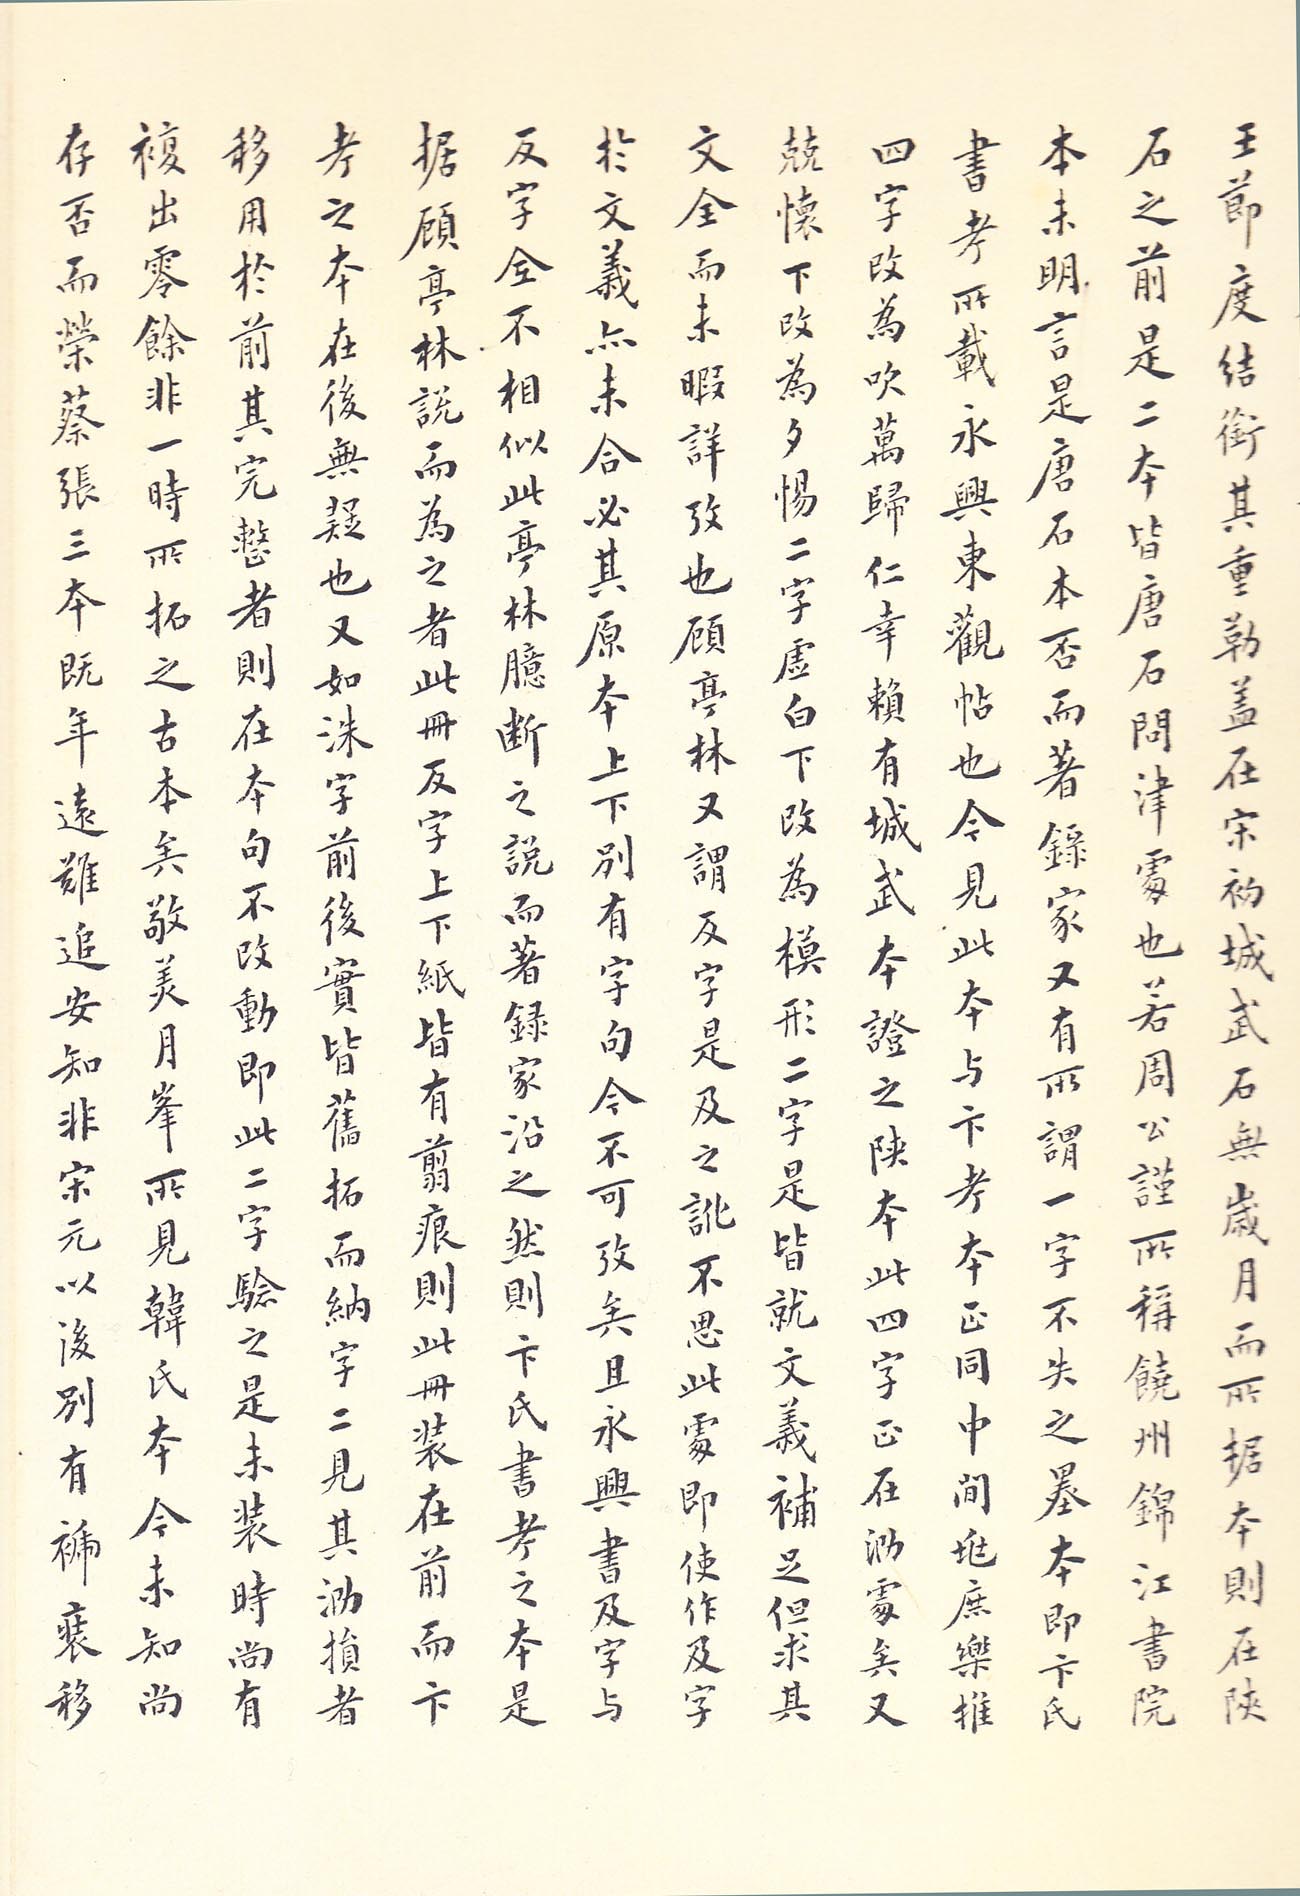 王節度結銜其重勒蓋在宋初城武石無歲月而所据本則在陝
石之前是二本皆唐石問津處也若周公謹所稱饒州錦江書院
本未明言是唐石本否而著錄家又有所謂一字不失之墨本即卞氏
書考所載永興東觀帖也今見此本与卞考本正同中間虺庶樂推
四字改為吹萬歸仁幸賴有城武本證之陝本此四字正在泐處矣又
兢懷下改為夕惕二字虛白下改為模形二字是皆就文義補足但求其
文全而未暇詳攷也顧亭林又謂反字是及之訛不思此處即使作及字
於文義亦未合必其原本上下別有字句今不可攷矣且永興書及字与
反字全不相似此亭林臆斷之說而著錄家沿之然則卞氏書考之本是
据顧亭林說而為之者此冊反字上下紙皆有翦痕則此冊裝在前而卞
考之本在後無疑也又如洙字前後實皆舊拓而納字二見其泐損者
移用於前其完整者則在本句不改動即此二字驗之是未裝時尚有
複出零餘非一時所拓之古本矣敬美月峯所見韓氏本今未知尚
存否而榮蔡張三本既年遠難追安知非宋元以後別有褾褻移